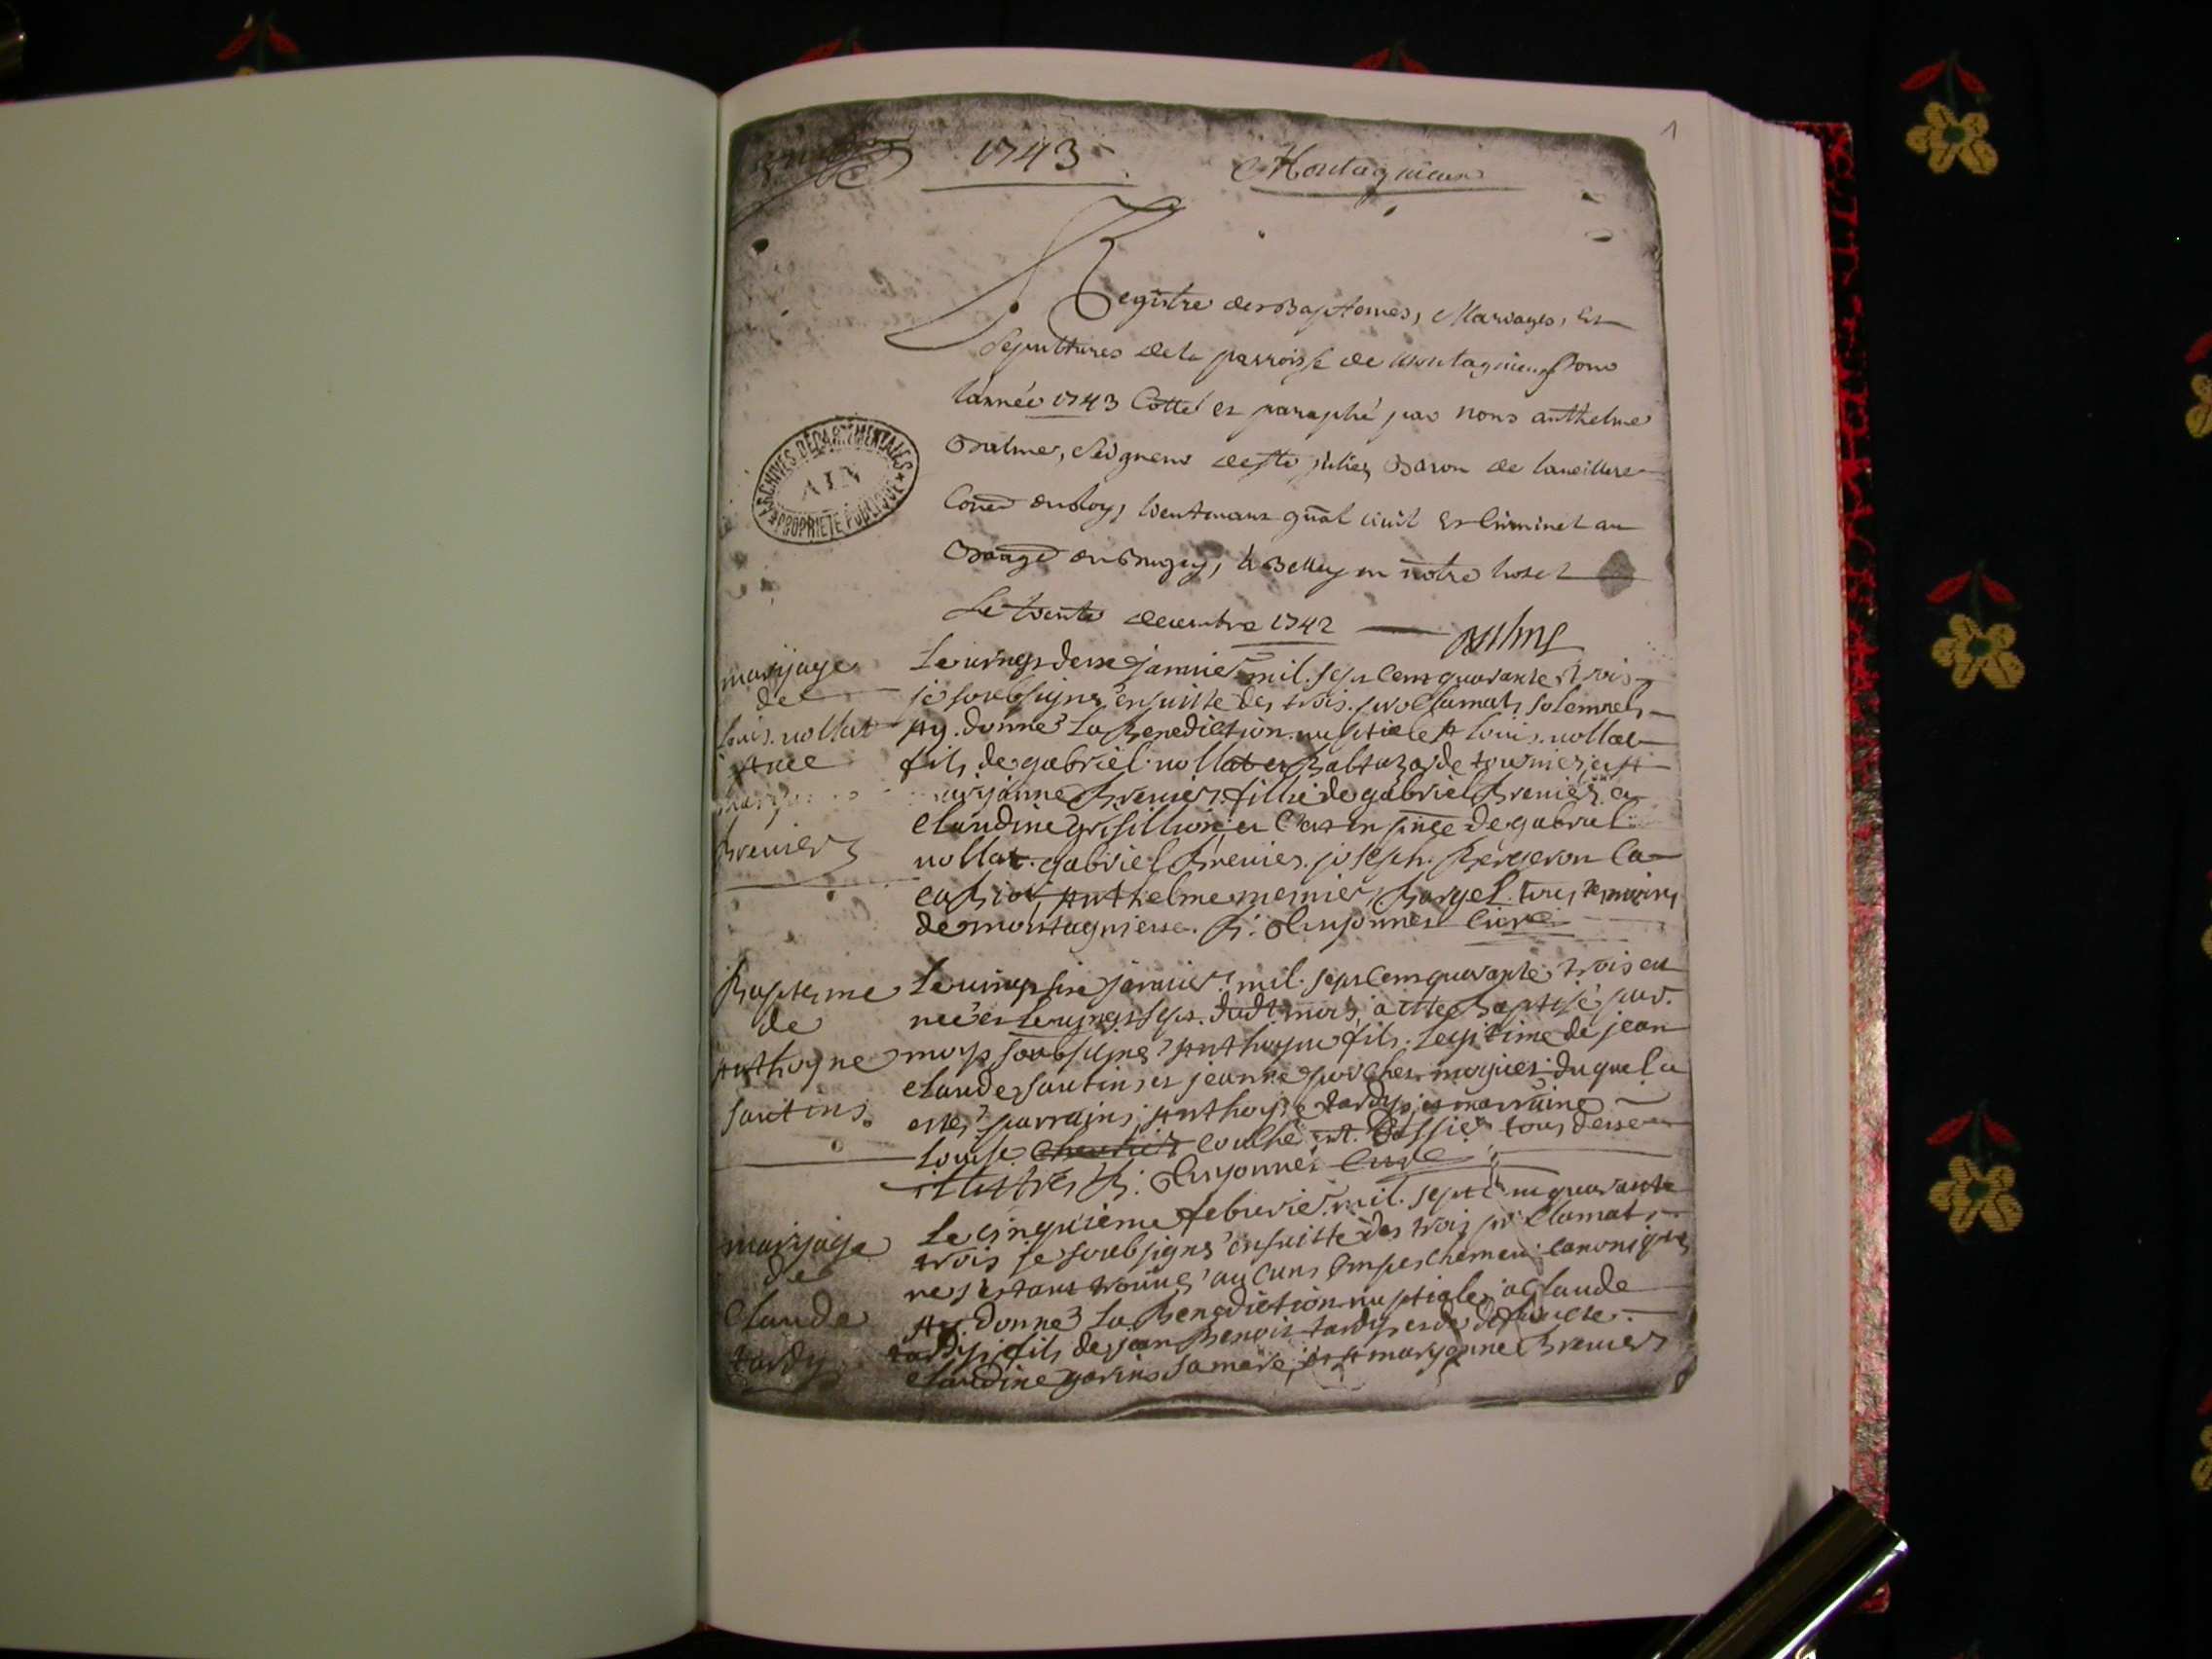 1
1743
Montagnieux
Registre des Baptemes, Mariages, Et
Sepultures de la parroisse de montagnieux pour
lannée 1743 Cotté et paraphé par nous anthelme
Balme, Seigneur de ste julie, Baron de
Conser du Roy, lieutenant gñal civil Et Criminel au
Baage du Bugey, à Belley en notre hotel
Le trente decembre 1742
Balme
ARCHIVES DÉPARTEMENTALES
AIN
PROPRIÉTÉ PUBLIQUE
marijage
de
louis. vollat
Brenier
Le vingt janvier mil. sept cent quarante trois
je soubsigné ensuitte des trois. proclamats solemnels
Ay. donné La Benediction nuptiele A louis. vollat
fils de gabriel. vollat et Baltazarde tournier, et A
marijanne Brenier. fillie de gabriel Brenier. et
Claudine grisillion et C'est en pñce de gabriel
vollat. gabriel Brenier. joseph. Bergeron
Anthelme memier, tous temoins
de montagnieux. B: Curé
Baptesme
de
Anthoyne
santins.
Le vingt sixe janvier. mil. sept cent quarante trois est
né et Le vingt sept. dudt. mois, a etté Baptisé par.
moy soubsigné Anthoyne fils. Legitime de jean
claude santins et jeanne moynier duquel a
estés parrains, Anthoyne tardy, et marraine
Louise couche tous deux
illittrés B: Curé
marijage
de
Claude
tardy
Le cinquieme febvrier. mil. sept cent quarante
trois je soubsigné ensuitte des trois proclamats
ne s'estant trouvés aucuns Empeschement canonique
Ay. donné La Benediction nuptiale, a Claude
tardy, fils de jean Benoit tardy, et de deffuncte.
Claudine sa mere, et A maryanne Brenier